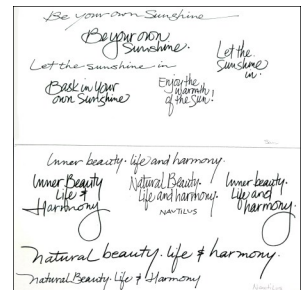 Be your own Sunshine
Be your own
Sunshine.
Let the sunshine in
Let the
Sunshine
in.
Bask in Your
own Sunshine
Enjoy the
warmth
of the Sun!
Inner beauty. life and harmony.
Inner Beauty
Life &
Harmony
Natural Beauty.
Life and harmony.
NAUTILUS
Inner beauty.
Life and
harmony.
natural beauty. life & harmony.
natural Beauty. Life & Harmony
Nautilus